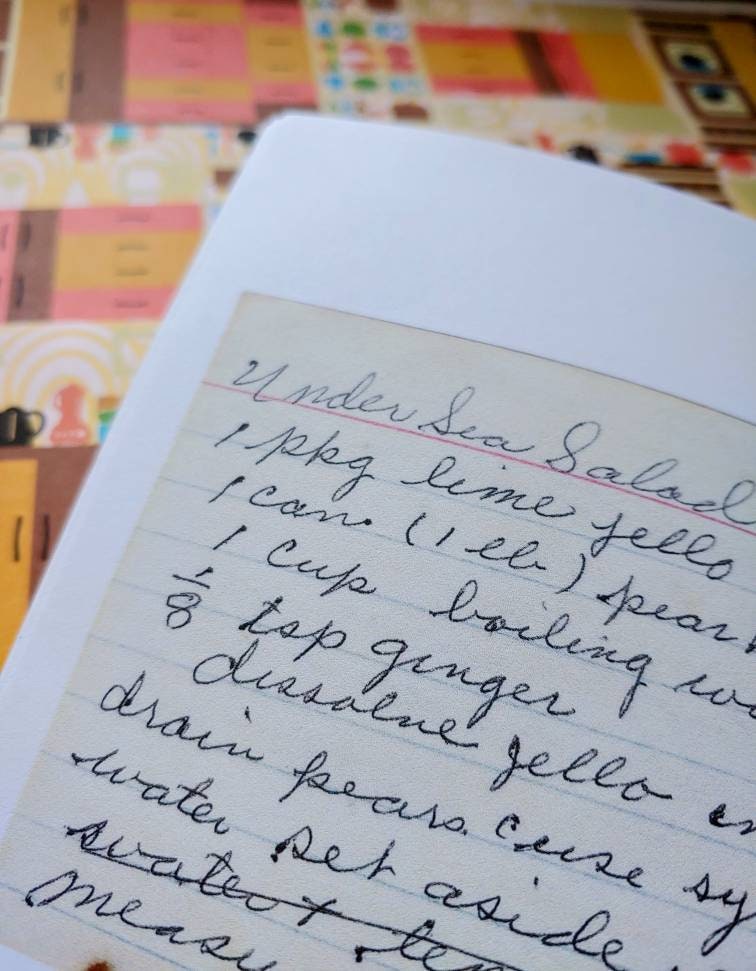 Under Sea Salad
1 pkg lime jello
1 can (1 lb) pear
1 cup boiling wa
1/8 tsp ginger
dissolve jello in
drain pears. save sy
water set aside
water +
measu